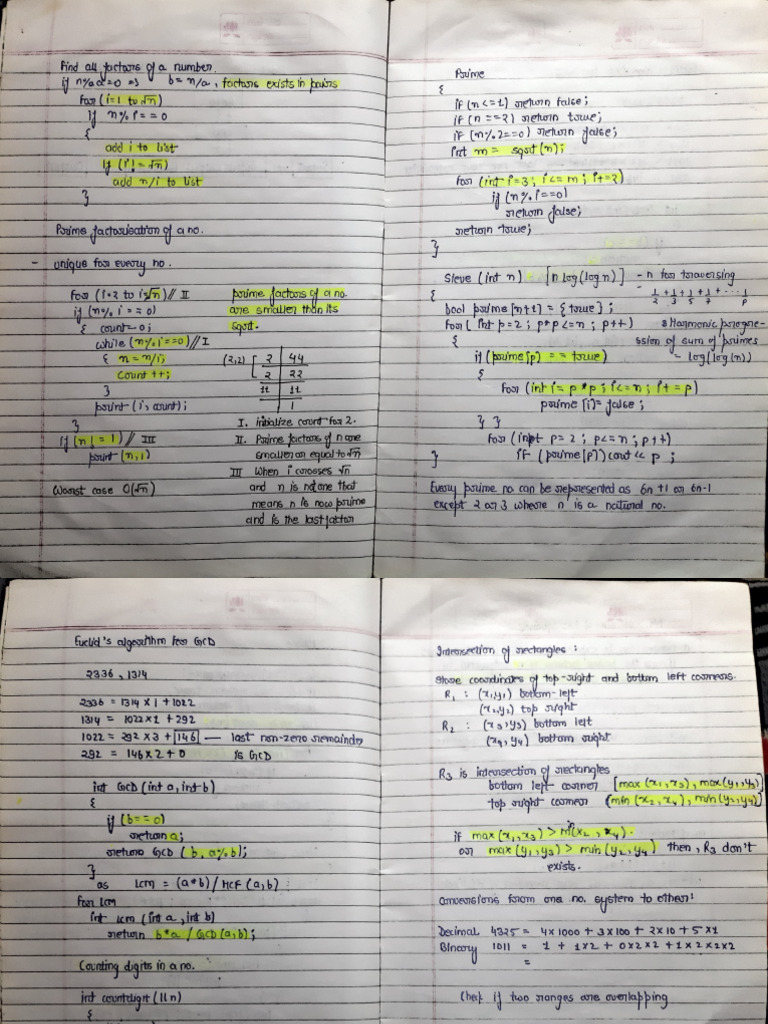 Find all factors of a number.
if n%a=0 => b=n/a, factors exists in pairs
for (i=1 to √n)
if n%i==0
{
add i to list
if (i!=√n)
add n/i to list
}
Prime factorisation of a no.
- unique for every no.
for (i=2 to i≤√n) // II
if (n%i==0)
{ count=0;
while (n%i==0) // I
{ n=n/i;
count++;
}
print (i, count);
}
if (n!=1) // III
print (n,1)
Worst case O(√n)
prime factors of a no.
are smaller than its
sqrt.
(2,2) 2 44
2 22
11 11
1
I. initialize count for 2.
II. Prime factors of n are
smaller or equal to √n
III When i crosses √n
and n is not one that
means n is now prime
and is the last factor
Prime
{
if (n<=1) return false;
if (n==2) return true;
if (n%2==0) return false;
int m = sqrt(n);
for (int i=3; i<=m; i+=2)
if (n%i==0)
return false;
return true;
}
Sieve (int n) - [n log(log n)] - n for traversing
{ 1/2+1/3+1/5+1/7+...1/p
bool prime[n+1] = {true};
for( int p=2; p*p<=n; p++) Harmonic progre-
{ ssion of sum of primes
if (prime[p] == true) = log(log(n))
{
for (int i=p*p; i<=n; i+=p)
prime[i]=false;
} }
for (int p=2; p<=n; p++)
} if (prime[p]) cout<< p ;
Every prime no can be represented as 6n+1 or 6n-1
except 2 or 3 where n is a natural no.
Euclid's algorithm for GCD
2336, 1314
2336 = 1314 x 1 + 1022
1314 = 1022 x 1 + 292
1022 = 292 x 3 + 146 — last non-zero remainder
292 = 146 x 2 + 0 is GCD
int GCD (int a, int b)
{
if (b==0)
return a;
return GCD (b, a%b);
}
as LCM = (a*b) / HCF (a,b)
For LCM
int LCM (int a, int b)
return b*a / GCD(a,b);
Counting digits in a no.
int countdigit (ll n)
{
Intersection of rectangles :
store coordinates of top-right and bottom left corners.
R1 : (x1,y1) bottom-left
(x2,y2) top right
R2 : (x3,y3) bottom left
(x4,y4) bottom right
R3 is intersection of rectangles
bottom left corner [max(x1,x3), max(y1,y3)]
top right corner (min(x2,x4), min(y2,y4)]
if max(x1,x3) > min(x2,x4).
or max(y1,y3) > min(y2,y4) then, R3 don't
exists.
Conversions from one no. system to other:
Decimal 4325 = 4x1000 + 3x100 + 2x10 + 5x1
Binary 1011 = 1 + 1x2 + 0x2x2 + 1x2x2x2
=
Check if two ranges are overlapping